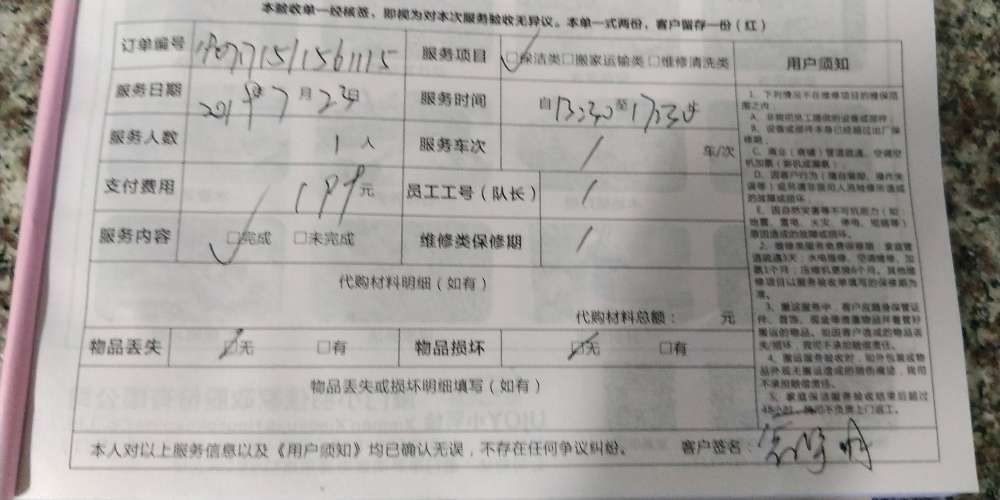 本验收单一经核签，即视为对本次服务验收无异议。本单一式两份，客户留存一份（红）
订单编号 服务项目 □保洁类□搬家运输类 □维修清洗类 用户须知
服务日期 2019年7月23日 服务时间 自13:30至17:30
服务人数 1 人 服务车次 / 车/次
支付费用 199元 员工工号（队长） /
服务内容 □完成 □未完成 维修类保修期 /
代购材料明细（如有）
代购材料总额： 元
物品丢失 □无 □有 物品损坏 □无 □有
物品丢失或损坏明细填写（如有）
本人对以上服务信息以及《用户须知》均已确认无误，不存在任何争议纠纷。 客户签名：
1、下列情况不在维修项目的维保范
围之内：
A、非我司员工提供的设备或部件；
B、设备或部件本身已经超过出厂保
修期；
C、商业（商铺）管道疏通、空调空
D、因客户行为（擅自装卸、操作失
误等）或另请非我司人员维修所造成
的故障或损坏。
E、因自然灾害等不可抗原力（如：
地震、雷电、火灾、停电、短路等）
原因造成的故障或损坏。
2、维修类服务免费保修期：家庭管
道疏通3天；水电维修、空调维修、加
氟1个月；压缩机更换6个月。其他维
修项目以服务验收单填写的保修期为
准。
3、搬运服务中，客户应随身保管证
件、首饰、现金等贵重物品并看管好
搬运的物品。如因客户造成的物品丢
失/损坏，我司不承担赔偿责任。
4、搬运服务验收时，如外包装或物
品外观无搬运造成的损伤痕迹，我司
不承担赔偿责任。
5、家庭保洁服务验收结束后超过
48小时，我司不负责上门返工。